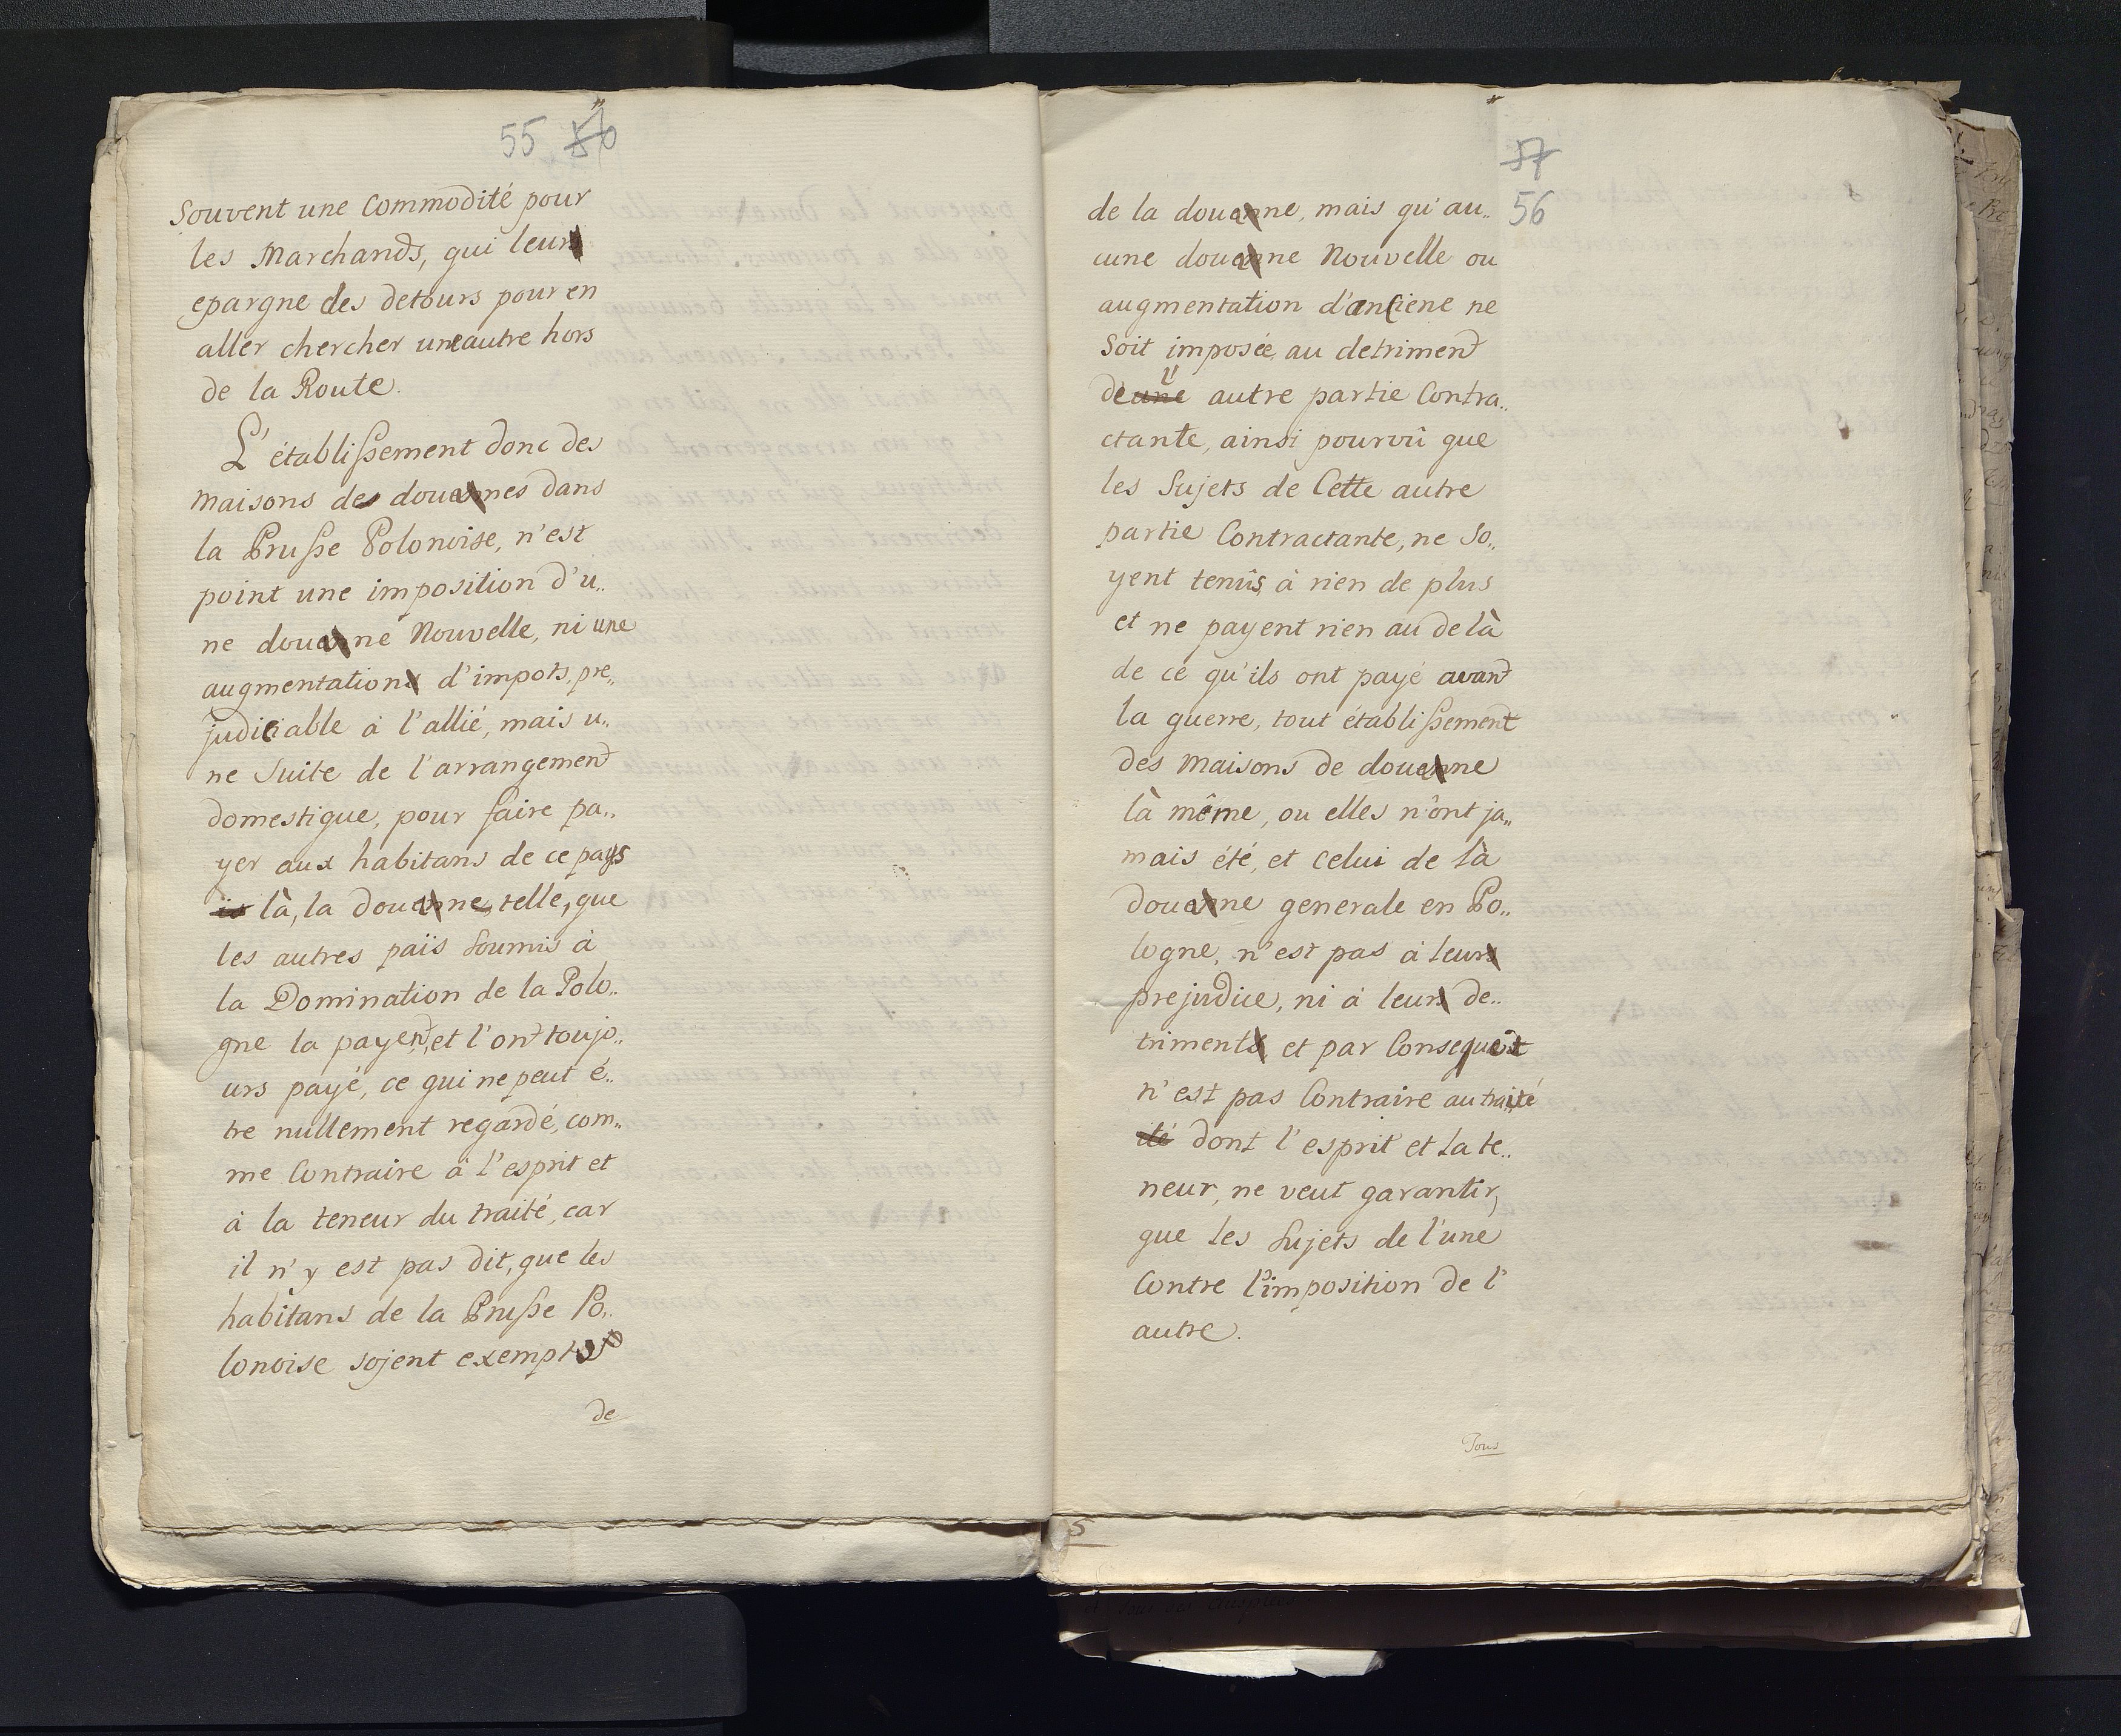 55 56
Souvent une Commodité pour
les Marchands, qui leurs
epargne des detours pour en
aller chercher une autre hors
de la Route.
L'établissement donc des
Maisons des douannes dans
la Prusse Polonoise, n'est
point une imposition d'u„
ne douanne Nouvelle, ni une
augmentations d'impots, pre„
judiciable à l'allié, mais u„
ne Suite de l'arrangement
domestique, pour faire pa„
yer aux habitans de ce pays
là, la douanne, telle, que
les autres païs Soumis à
la Domination de la Polo„
gne la payent, et l'ont toujo„
urs payé, ce qui ne peut ê„
tre nullement regardé, com„
me Contraire à l'esprit et
à la teneur du traité, car
il n'y est pas dit, que les
habitans de la Prusse Po„
lonoise sojent exempts
de
57
56
de la douanne, mais qu'au„
cune douanne Nouvelle ou
augmentation d'anciene ne
Soit imposée, au detriment
de une l' autre partie Contra„
ctante, ainsi pourvû que
les Sujets de Cette autre
partie Contractante, ne So„
yent tenûs, à rien de plus
et ne payent rien au de là
de ce qu'ils ont payé avant
la guerre, tout établissement
des Maisons de douanne
là même, ou elles n'ônt ja„
mais été, et celui de là
douanne generale en Po„
logne, n'est pas à leurs
prejudice, ni à leurs de„
triments, et par Consequent
n'est pas Contraire au traité
ité dont l'esprit et la te„
neur, ne veut garantir,
que les Sujets de l'une
Contre l'imposition de l'
autre.
Tous
5